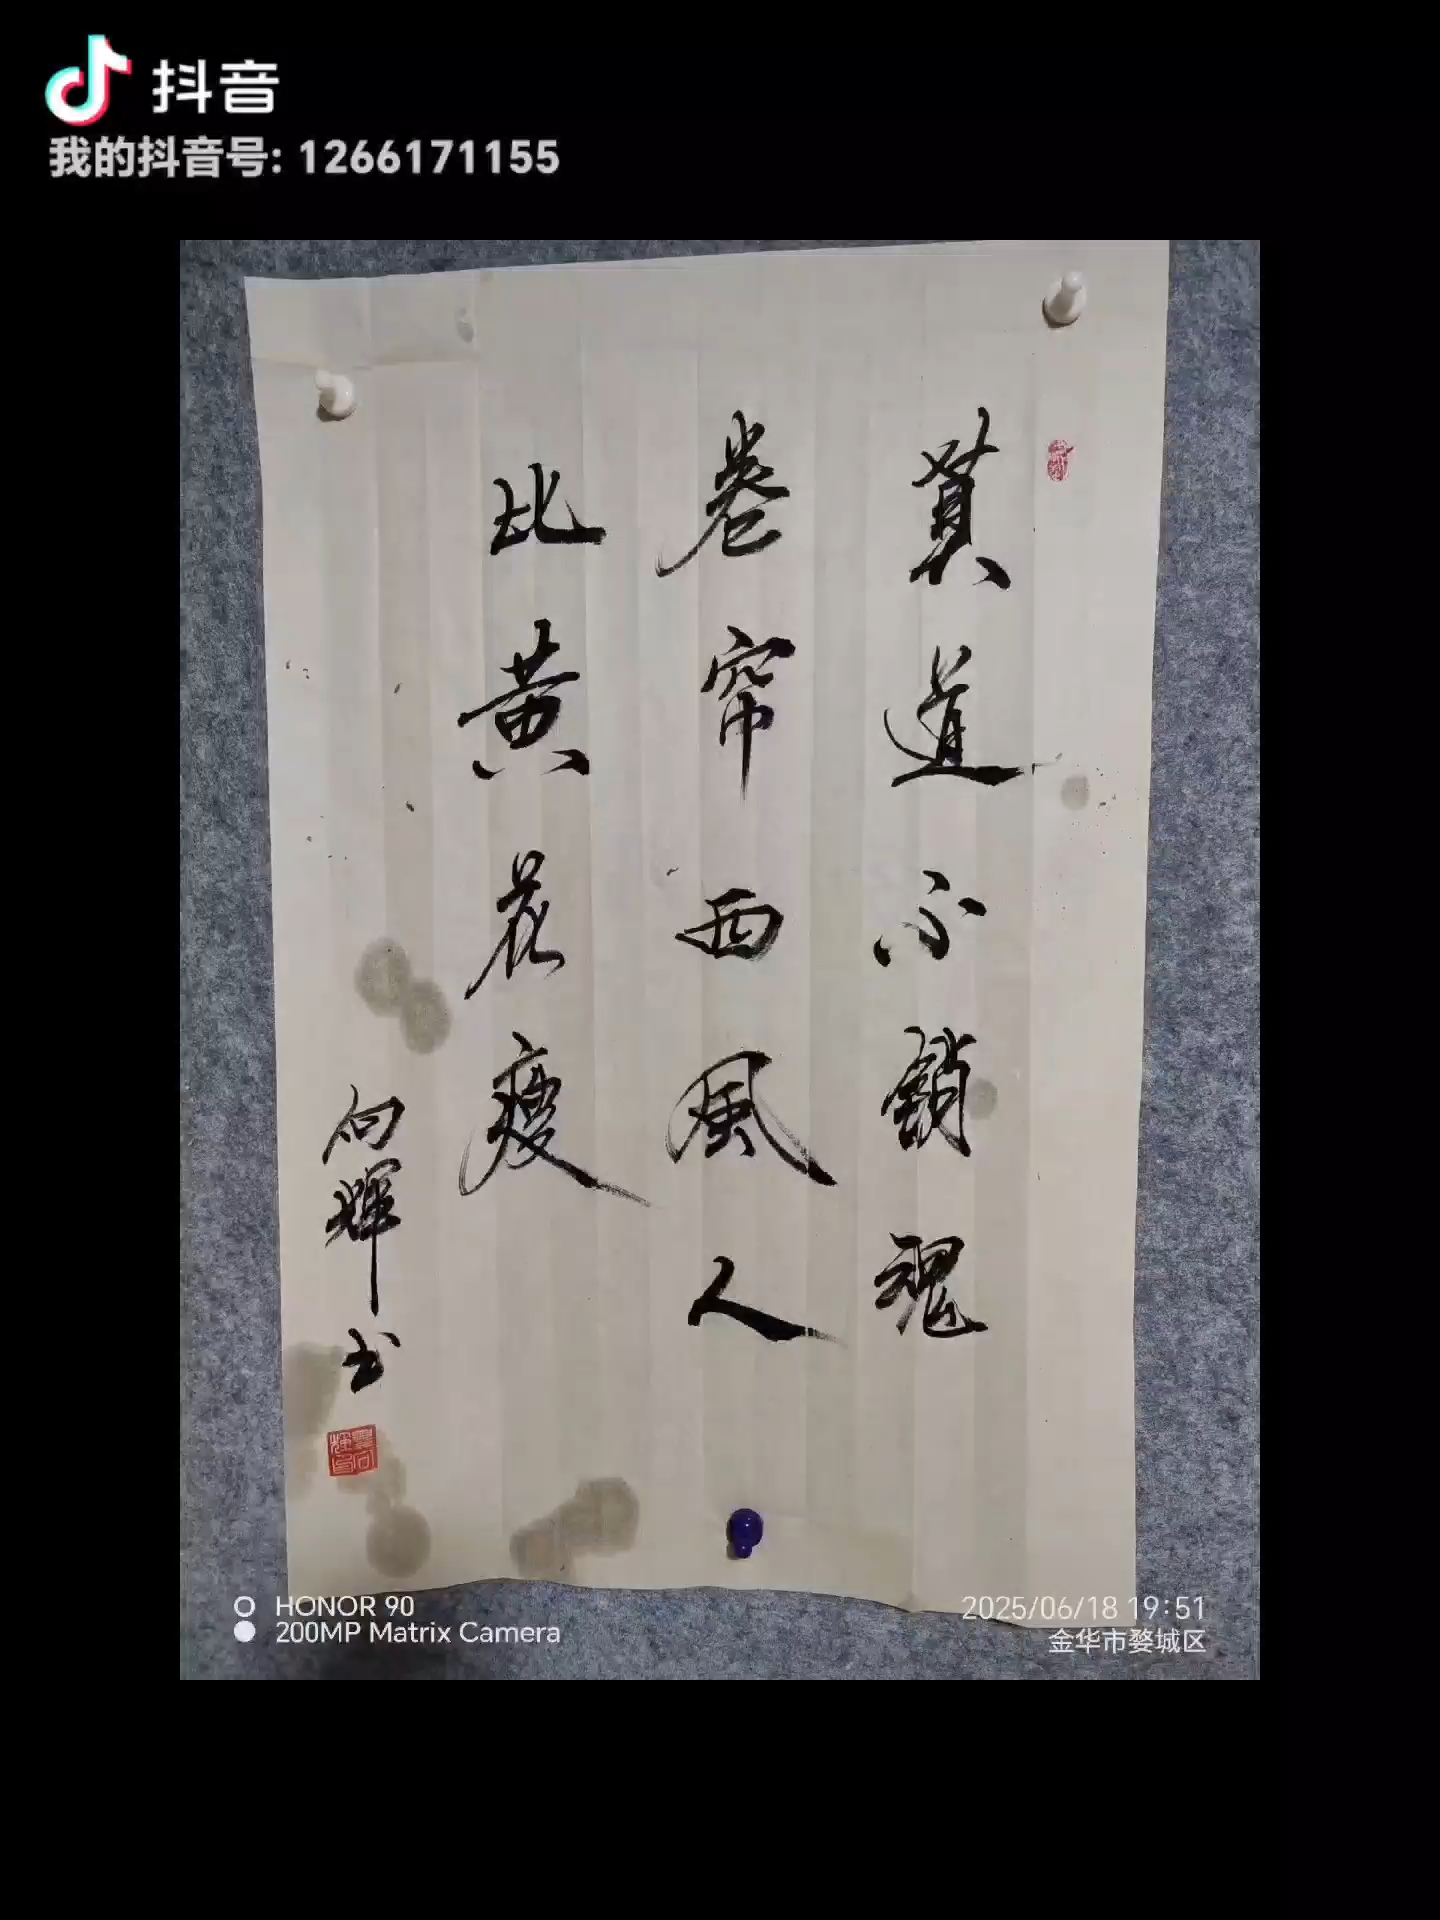 抖音
我的抖音号: 1266171155
莫道不銷魂
卷帘西風人
比黄花瘦
向輝书
HONOR 90
200MP Matrix Camera
2025/06/18 19:51
金华市婺城区